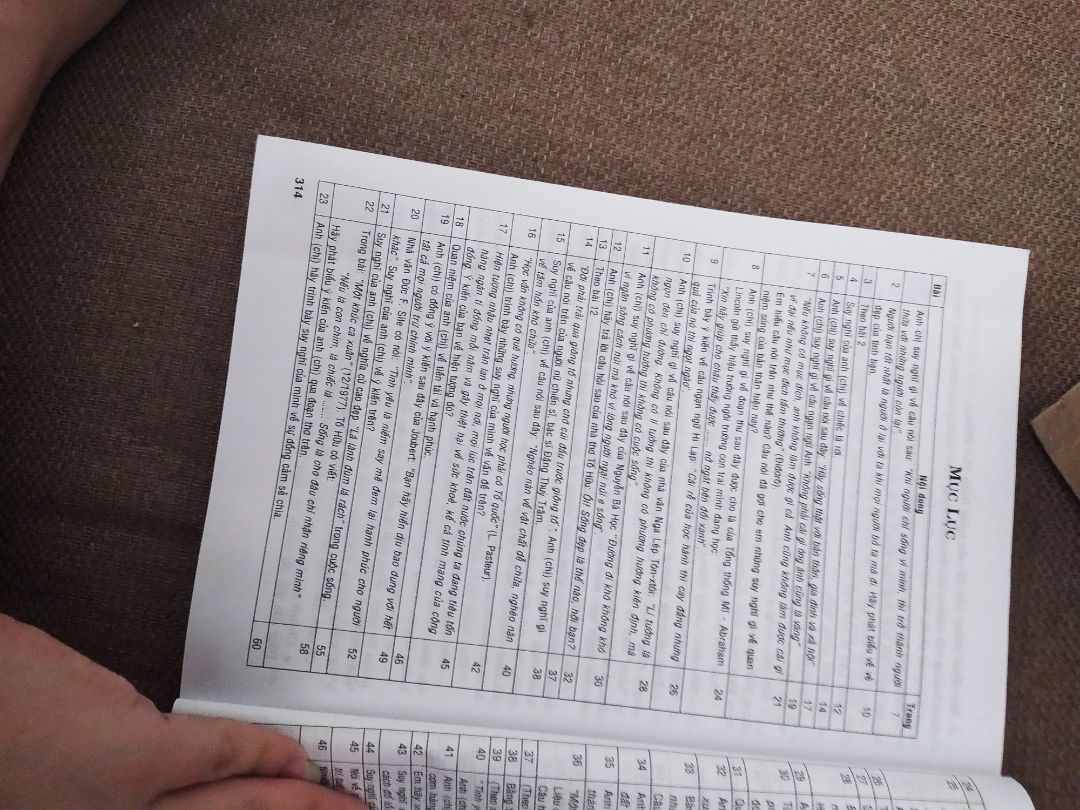 MỤC LỤC
Bài Nội dung Trang
Anh chị suy nghĩ gì về câu nói sau: "Khi người chỉ sống vì mình, thì trở thành người
thừa với những người còn lại" 7
2 Người bạn tốt nhất là người ở lại với ta khi mọi người bỏ ta mà đi. Hãy phát biểu về vẻ
đẹp của tình bạn. 10
3 Theo bài 2
4 Suy nghĩ của anh (chị) về chiếc lá rơi. 12
5 Anh (chị) suy nghĩ gì về câu nói sau đây: "Hãy sống thật với bản thân, gia đình và xã hội" 14
6 Anh (chị) suy nghĩ gì về câu ngạn ngữ Anh "Không phải cái gì óng ánh cũng là vàng" 17
7 "Nếu không có mục đích, anh không làm được gì cả. Anh cũng không làm được cái gì 19
vĩ đại nếu như mục đích tầm thường" (Điđơrô).
Em hiểu câu nói trên như thế nào? Câu nói đã gợi cho em những suy nghĩ gì về quan 21
niệm sống của bản thân hiện nay?
8 Anh (chị) suy nghĩ gì về đoạn thư sau đây được cho là của Tổng thống Mĩ - Abraham
Lincoln gửi thầy hiệu trưởng ngôi trường con trai mình đang học:
"Xin hãy giúp cho cháu thấy được ....... nở ngát bên đồi xanh" 24
9 Trình bày ý kiến về câu ngạn ngữ Hi Lạp: "Cái rễ của học hành thì cay đắng nhưng
quả của nó thì ngọt ngào" 26
10 Anh (chị) suy nghĩ gì về câu nói sau đây của nhà văn Nga Lép Tôn-xtôi: "Lí tưởng là
ngọn đèn chỉ đường. Không có lí tưởng thì không có phương hướng kiên định, mà
không có phương hướng thì không có cuộc sống" 28
11 Anh (chị) suy nghĩ gì về câu nói sau đây của Nguyễn Bá Học: "Đường đi khó không khó
vì ngăn sông cách núi mà khó vì lòng người ngại núi e sông". 30
12 Anh (chị) hãy trả lời câu hỏi sau của nhà thơ Tố Hữu: Ôi! Sống đẹp là thế nào, hỡi bạn?
13 Theo bài 12 32
14 "Đời phải trải qua giông tố nhưng chớ cúi đầu trước giông tố". Anh (chị) suy nghĩ gì
về câu nói trên của người nữ chiến sĩ, bác sĩ Đặng Thuỳ Trâm. 37
15 Suy nghĩ của anh (chị) về câu nói sau đây: "Nghèo nàn về vật chất dễ chữa, nghèo nàn
về tâm hồn khó chữa". 38
16 "Học vấn không có quê hương, nhưng người học phải có Tổ quốc" (L. Pasteur).
Anh (chị) trình bày những suy nghĩ của mình về vấn đề trên? 40
17 Hiện tượng nhậu nhẹt tràn lan ở mọi nơi, mọi lúc trên đất nước chúng ta đang tiêu tốn
hàng ngàn tỉ đồng mỗi năm và gây thiệt hại về sức khoẻ, kể cả tính mạng của cộng
đồng. Ý kiến của bạn về hiện tượng đó? 42
18 Quan niệm của anh (chị) về tiền tài và hạnh phúc.
19 Anh (chị) có đồng ý với ý kiến sau đây của Joubert: "Bạn hãy hiền dịu bao dung với hết 45
tất cả mọi người trừ chính mình".
20 Nhà văn Đức F. Sile có nói: "Tình yêu là niềm say mê đem lại hạnh phúc cho người 46
khác". Suy nghĩ của anh (chị) về ý kiến trên?
21 Suy nghĩ của anh (chị) về nghĩa cử cao đẹp: "Lá lành đùm lá rách" trong cuộc sống. 49
22 Trong bài: "Một khúc ca xuân" (12/1977), Tố Hữu có viết:
"Nếu là con chim, là chiếc lá ........ Sống là cho đâu chỉ nhận riêng mình" 52
Hãy phát biểu ý kiến của anh (chị) qua đoạn thơ trên. 55
23 Anh (chị) hãy trình bày suy nghĩ của mình về sự đồng cảm sẻ chia. 58
60
314
28
29
30
31
32
33
34
35
36
37
38
39
40
41
42
43
44
45
46